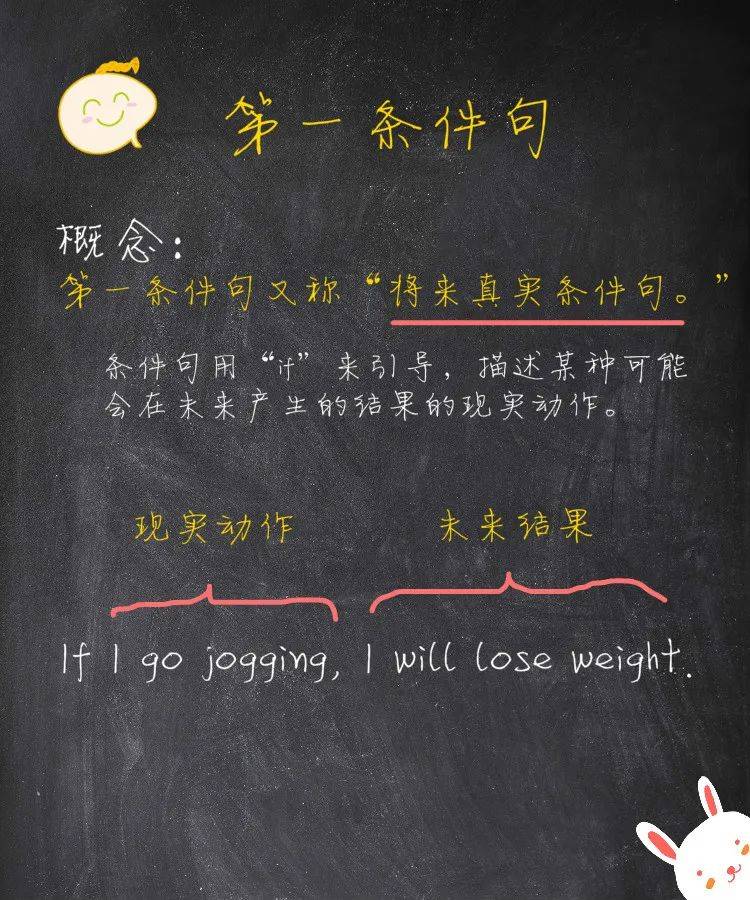 第一条件句
概念：
第一条件句又称“将来真实条件句。”
条件句用“if”来引导，描述某种可能
会在未来产生的结果的现实动作。
现实动作 未来结果
If I go jogging, I will lose weight.